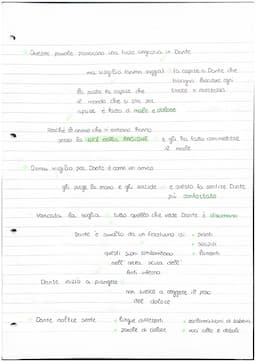 Queste parole provocano una forte angoscia in Dante
ma Virgilio (uomo saggio)
fa capire a Dante che
bisogna lasciare ogni
fa capire che
il mondo che si sta per
aprire è fatto di male e dolore
Perché le anime che vi entrano hanno
perso la luce della RAGIONE e gli ha fatto commettere
il male
Ormai Virgilio per Dante è come un amico
gli porge la mano e gli sorride e questo fa sentire Dante
più confortato
Varcata la soglia tutto quello che vede Dante è
Dante è avvolto da un frastuono di • pianti
• sospiri
• lamenti
questi suoni rimbombano
nell'aria scura dell'
Dante inizia a piangere
non riesce a reggere il peso
del dolore
Dante inoltre sente • lingue differenti
• parole di dolore
• esclamazioni di rabbia
• voci alte e deboli